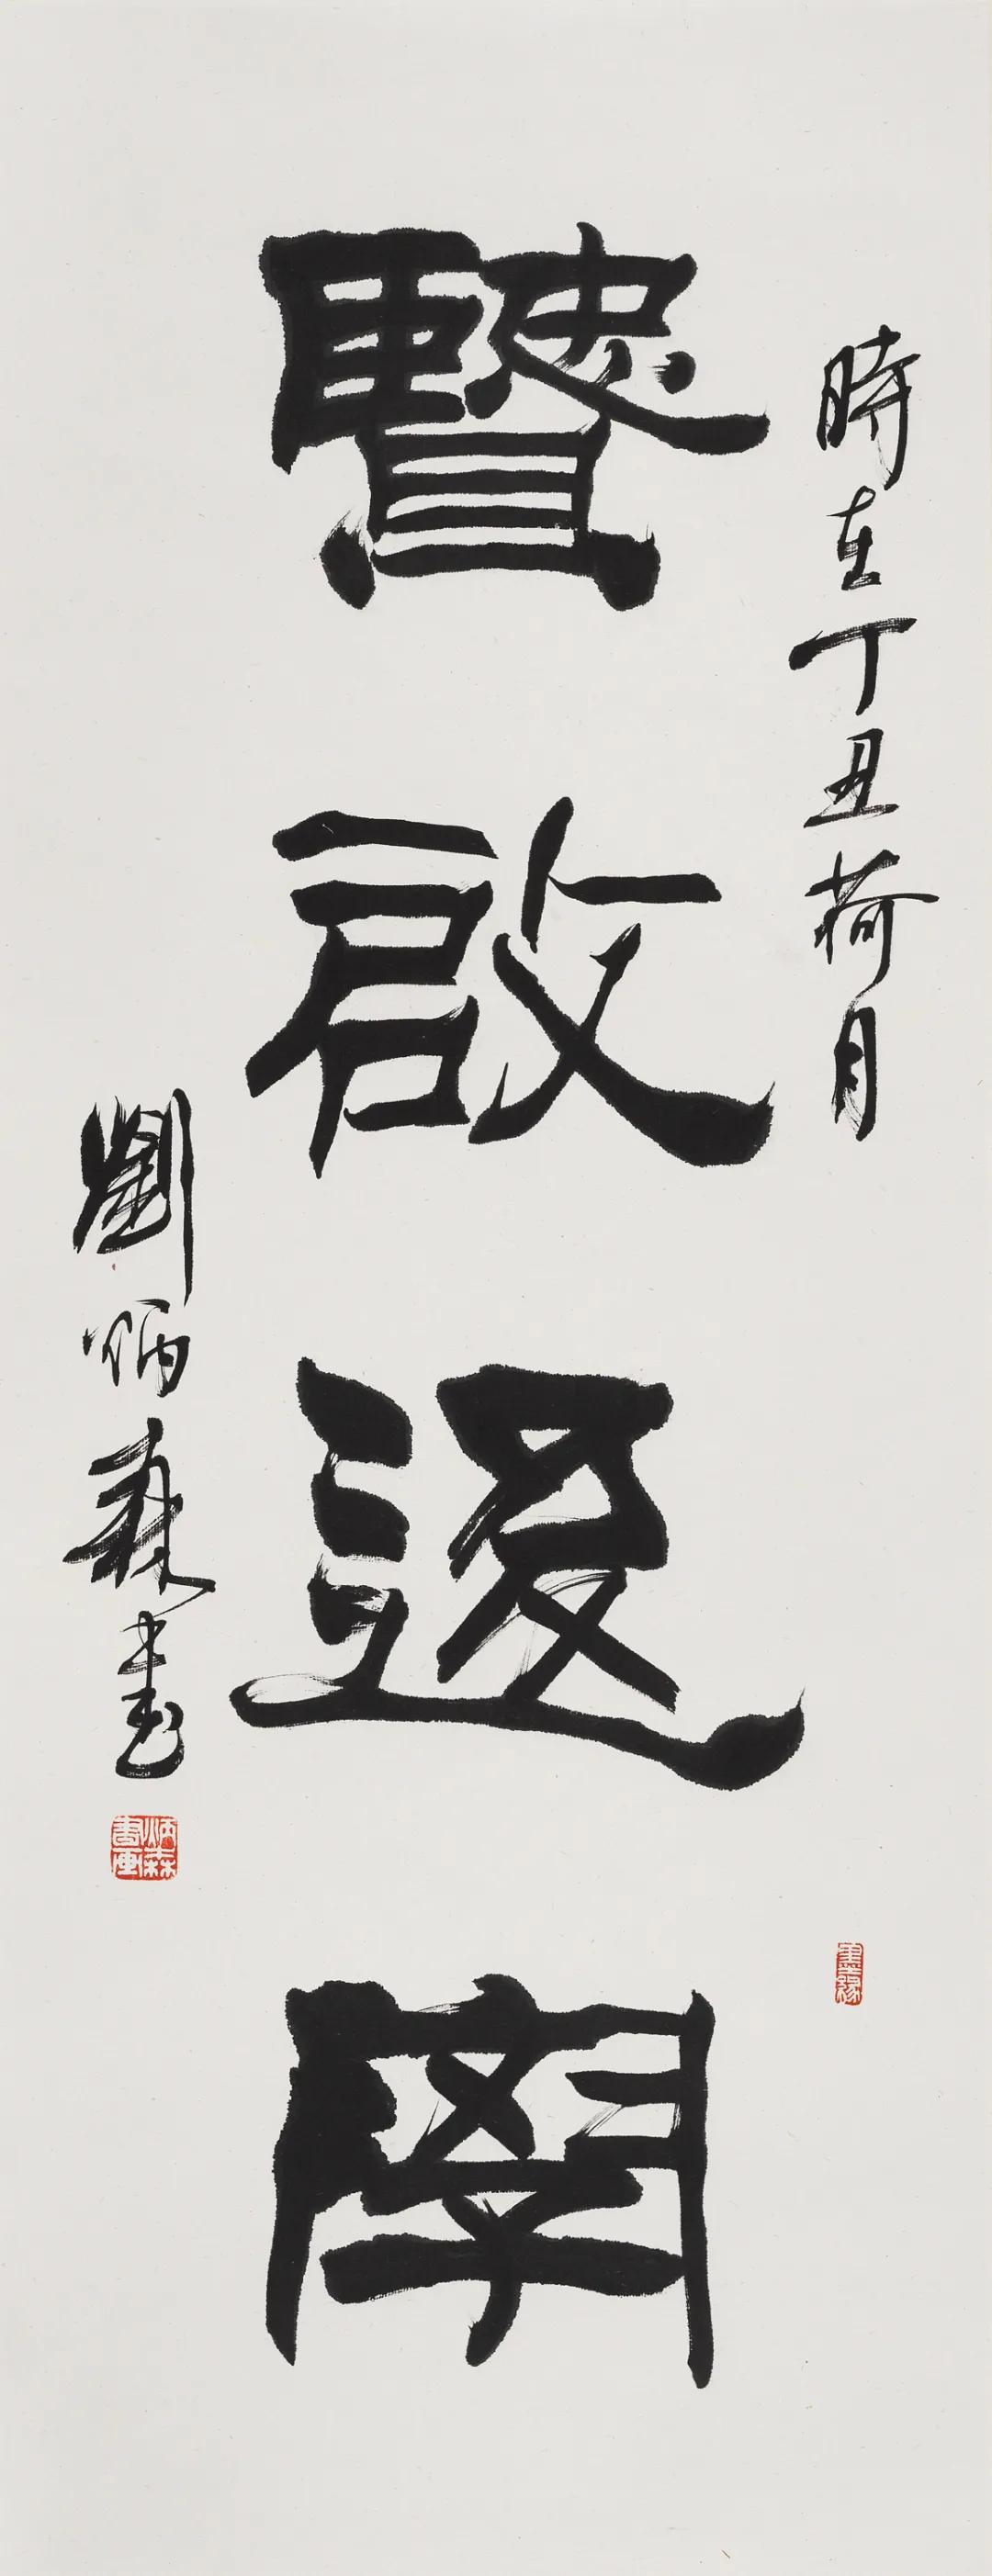 時在丁丑荷月
贒啟後學
劉炳森書
炳森書画
墨緣